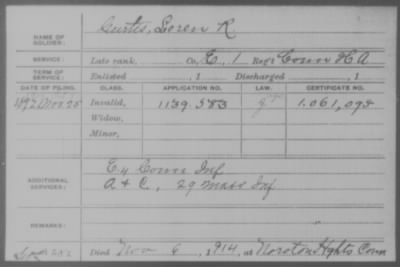 NAME OF SOLDIER: Curtis, Loren R.
SERVICE: Late rank, Co. E, 1 Reg't Conn H A
TERM OF SERVICE: Enlisted , 1 Discharged , 1
DATE OF FILING. CLASS. APPLICATION NO. LAW. CERTIFICATE NO.
1892 Nov 25 Invalid, 1139 583 1.061,092
Widow,
Minor,
ADDITIONAL SERVICES: E 4 Conn Inf
A & C, 29 Mass Inf
REMARKS:
Died Nov 6, 1914, at Noroton Hghts Conn